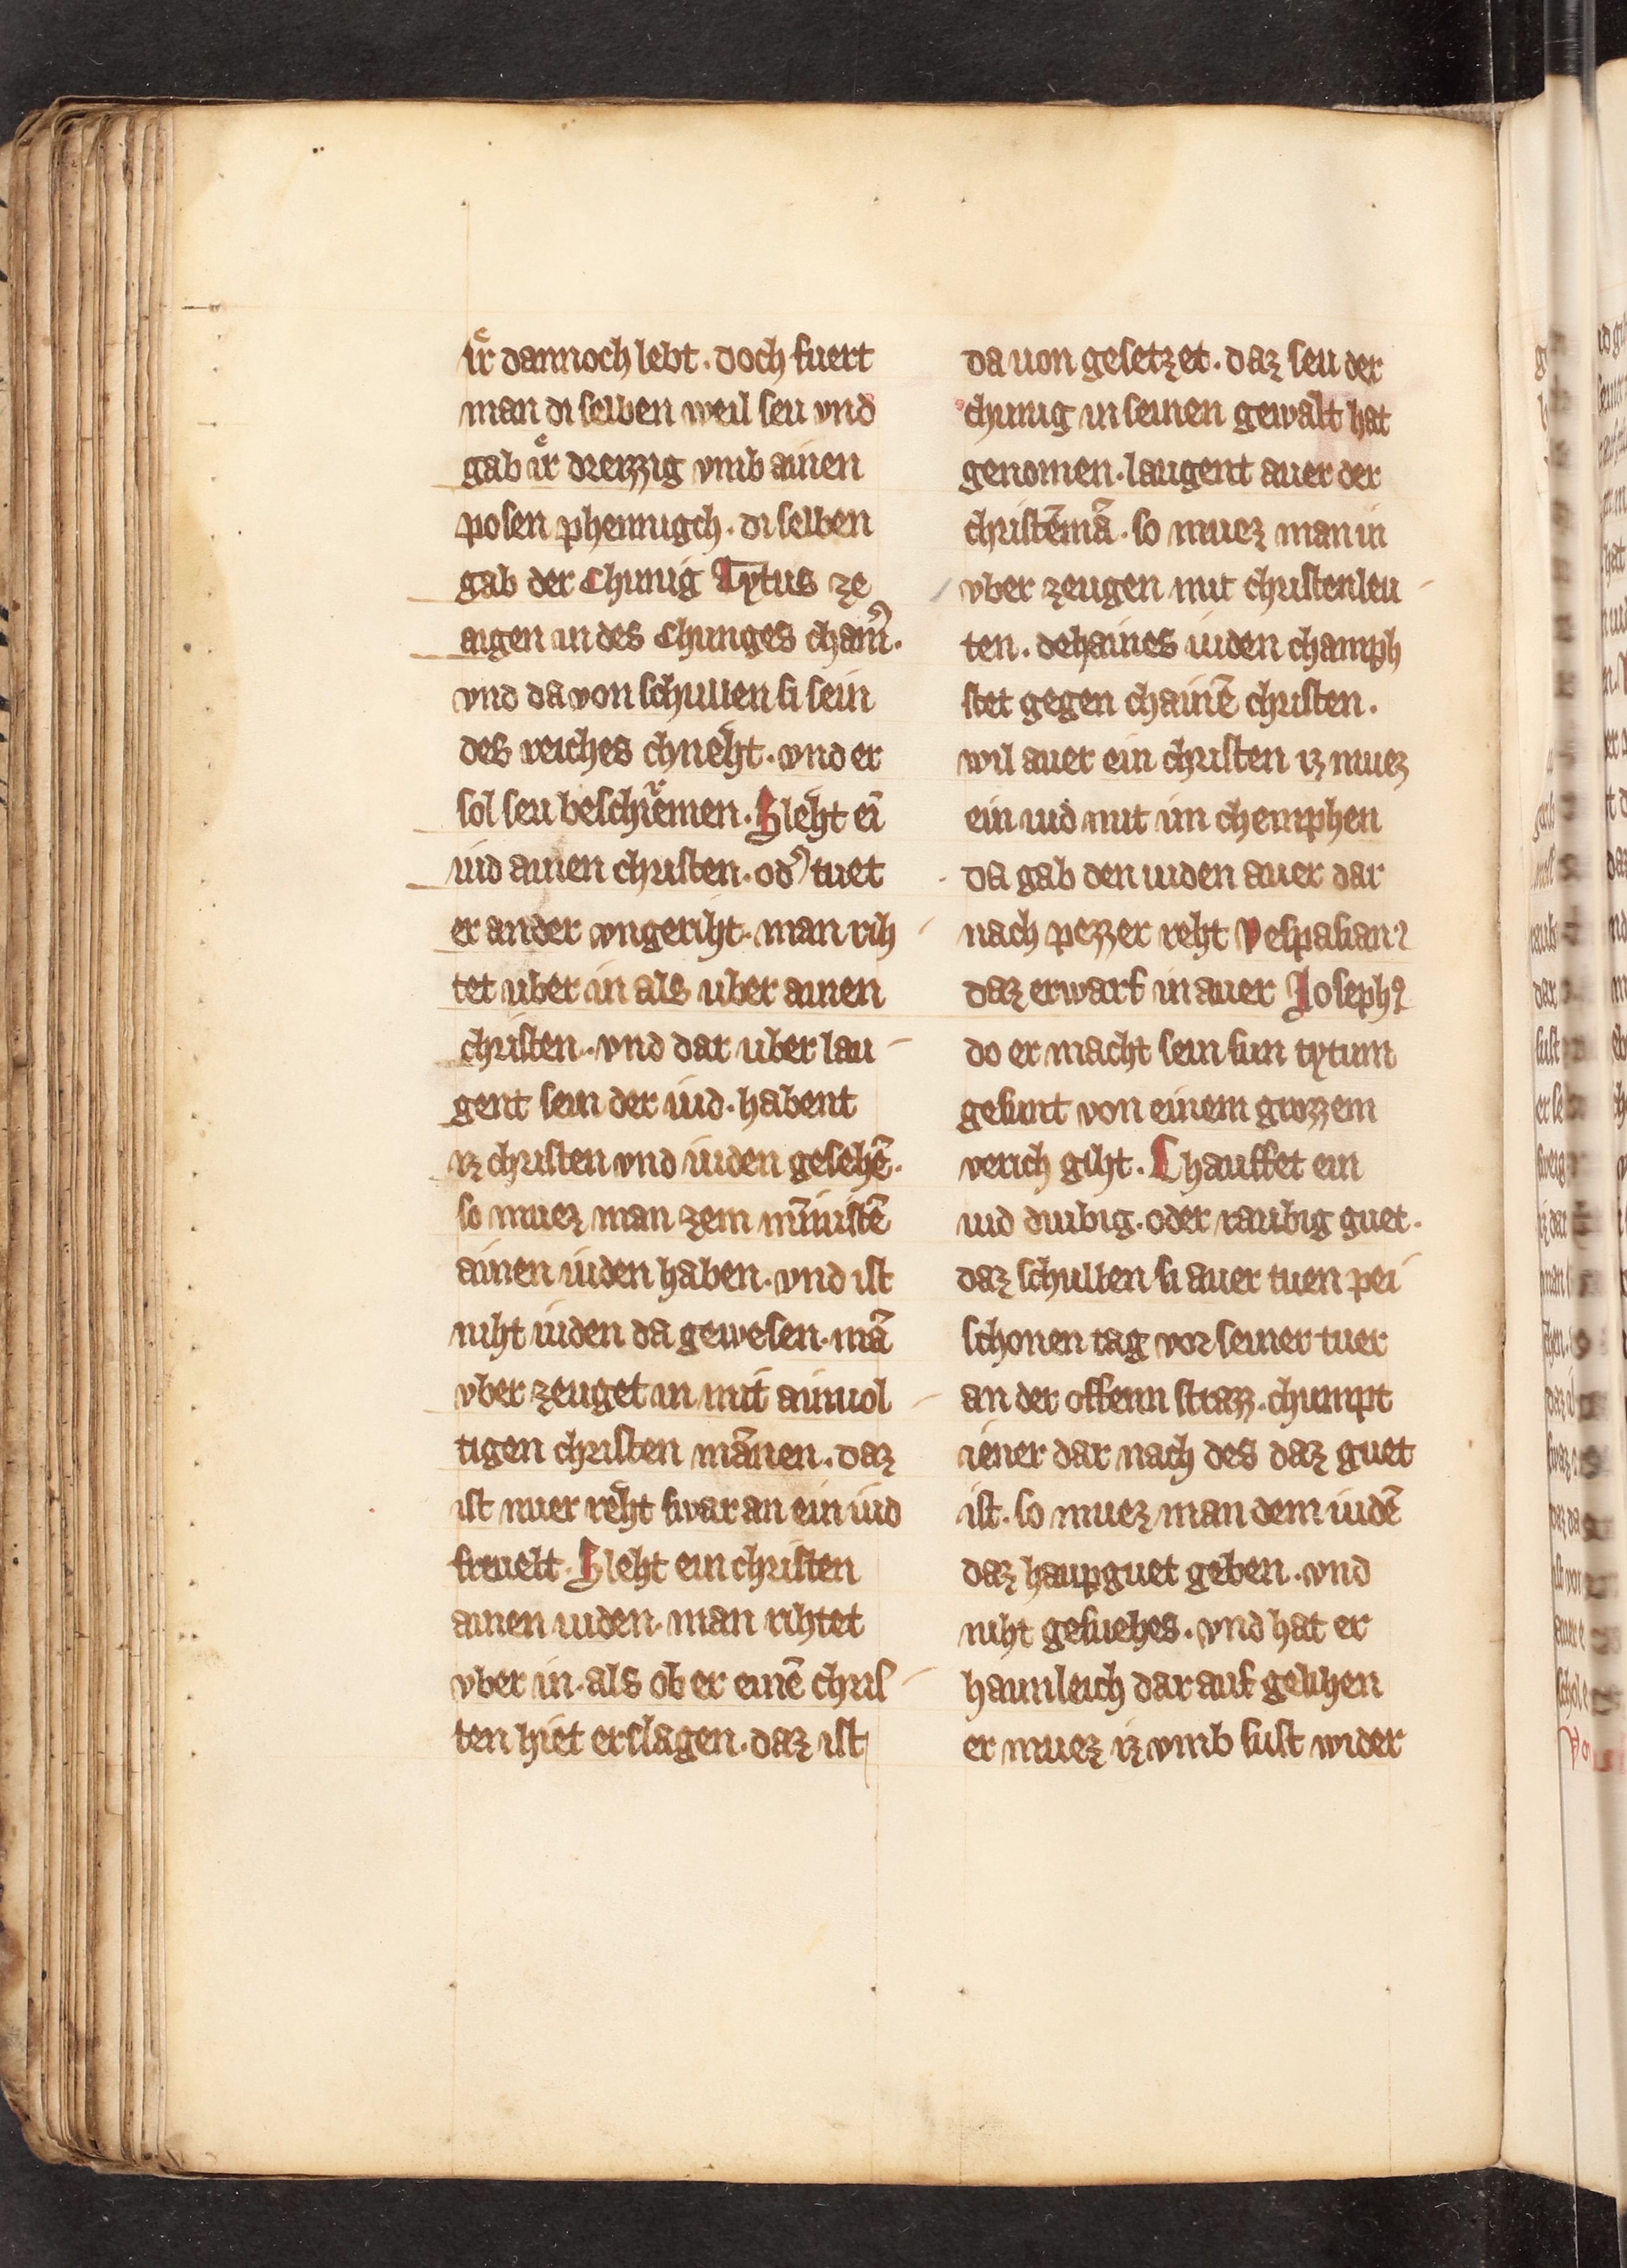 uͤr dannoch lebt. doch fuert
man di selben weil seu vnd
gab uͤr dreizzig vmb ainen
posen phennigch. di selben
gab der Chunig Tytus ze
aigen in des Chuniges cham̄.
vnd da von schullen si sein
des reiches chneht. vnd er
sol seu beschiͤrmen. Sleht ei̅
iud ainen christen. od᾽ tuet
er ander vngeriht. man rih
tet uber in als uber ainen
christen. vnd dar uber lau-
gent sein der iud. habent
iz christen vnd iuden gesehe̅.
so muez man zem minniste̅
ainen iuden haben. vnd ist
niht iuden da gewesen. ma̅
vber zeuget in mit ainuol
tigen christen ma̅nen. daz
ist nuer reht swar an ein iud
freuelt. Sleht ein christen
ainen iuden. man rihtet
vber in. als ob er eine̅ chris-
ten hiet erslagen. daz ist
da uon gesetzet. daz seu der
chunig in seinen gewalt hat
genomen. laugent auer der
christe̅ma̅. so muez man in
vber zeugen mit christenleu-
ten. dehaines iuden champh
stet gegen chaine̅ christen.
wil auer ein christen iz muez
ein iud mit im chemphen
da gab den iuden auer dar
nach pezzer reht Vespasianꝰ
daz erwarf in auer Josephꝰ
do er macht sein sun tytum
gesunt von einem grozzem
verich giht. Chauffet ein
iud diubig. oder raubig guet.
daz schullen si auer tuen pei
schonen tag vor seiner tuer
an der offenn strazz. chumpt
iener dar nach des daz guet
ist. so muez man dem iude̅
daz haupguet geben. vnd
niht gesuehes. vnd hat er
haimleich dar auf gelihen
er muez iz vmb sust wider